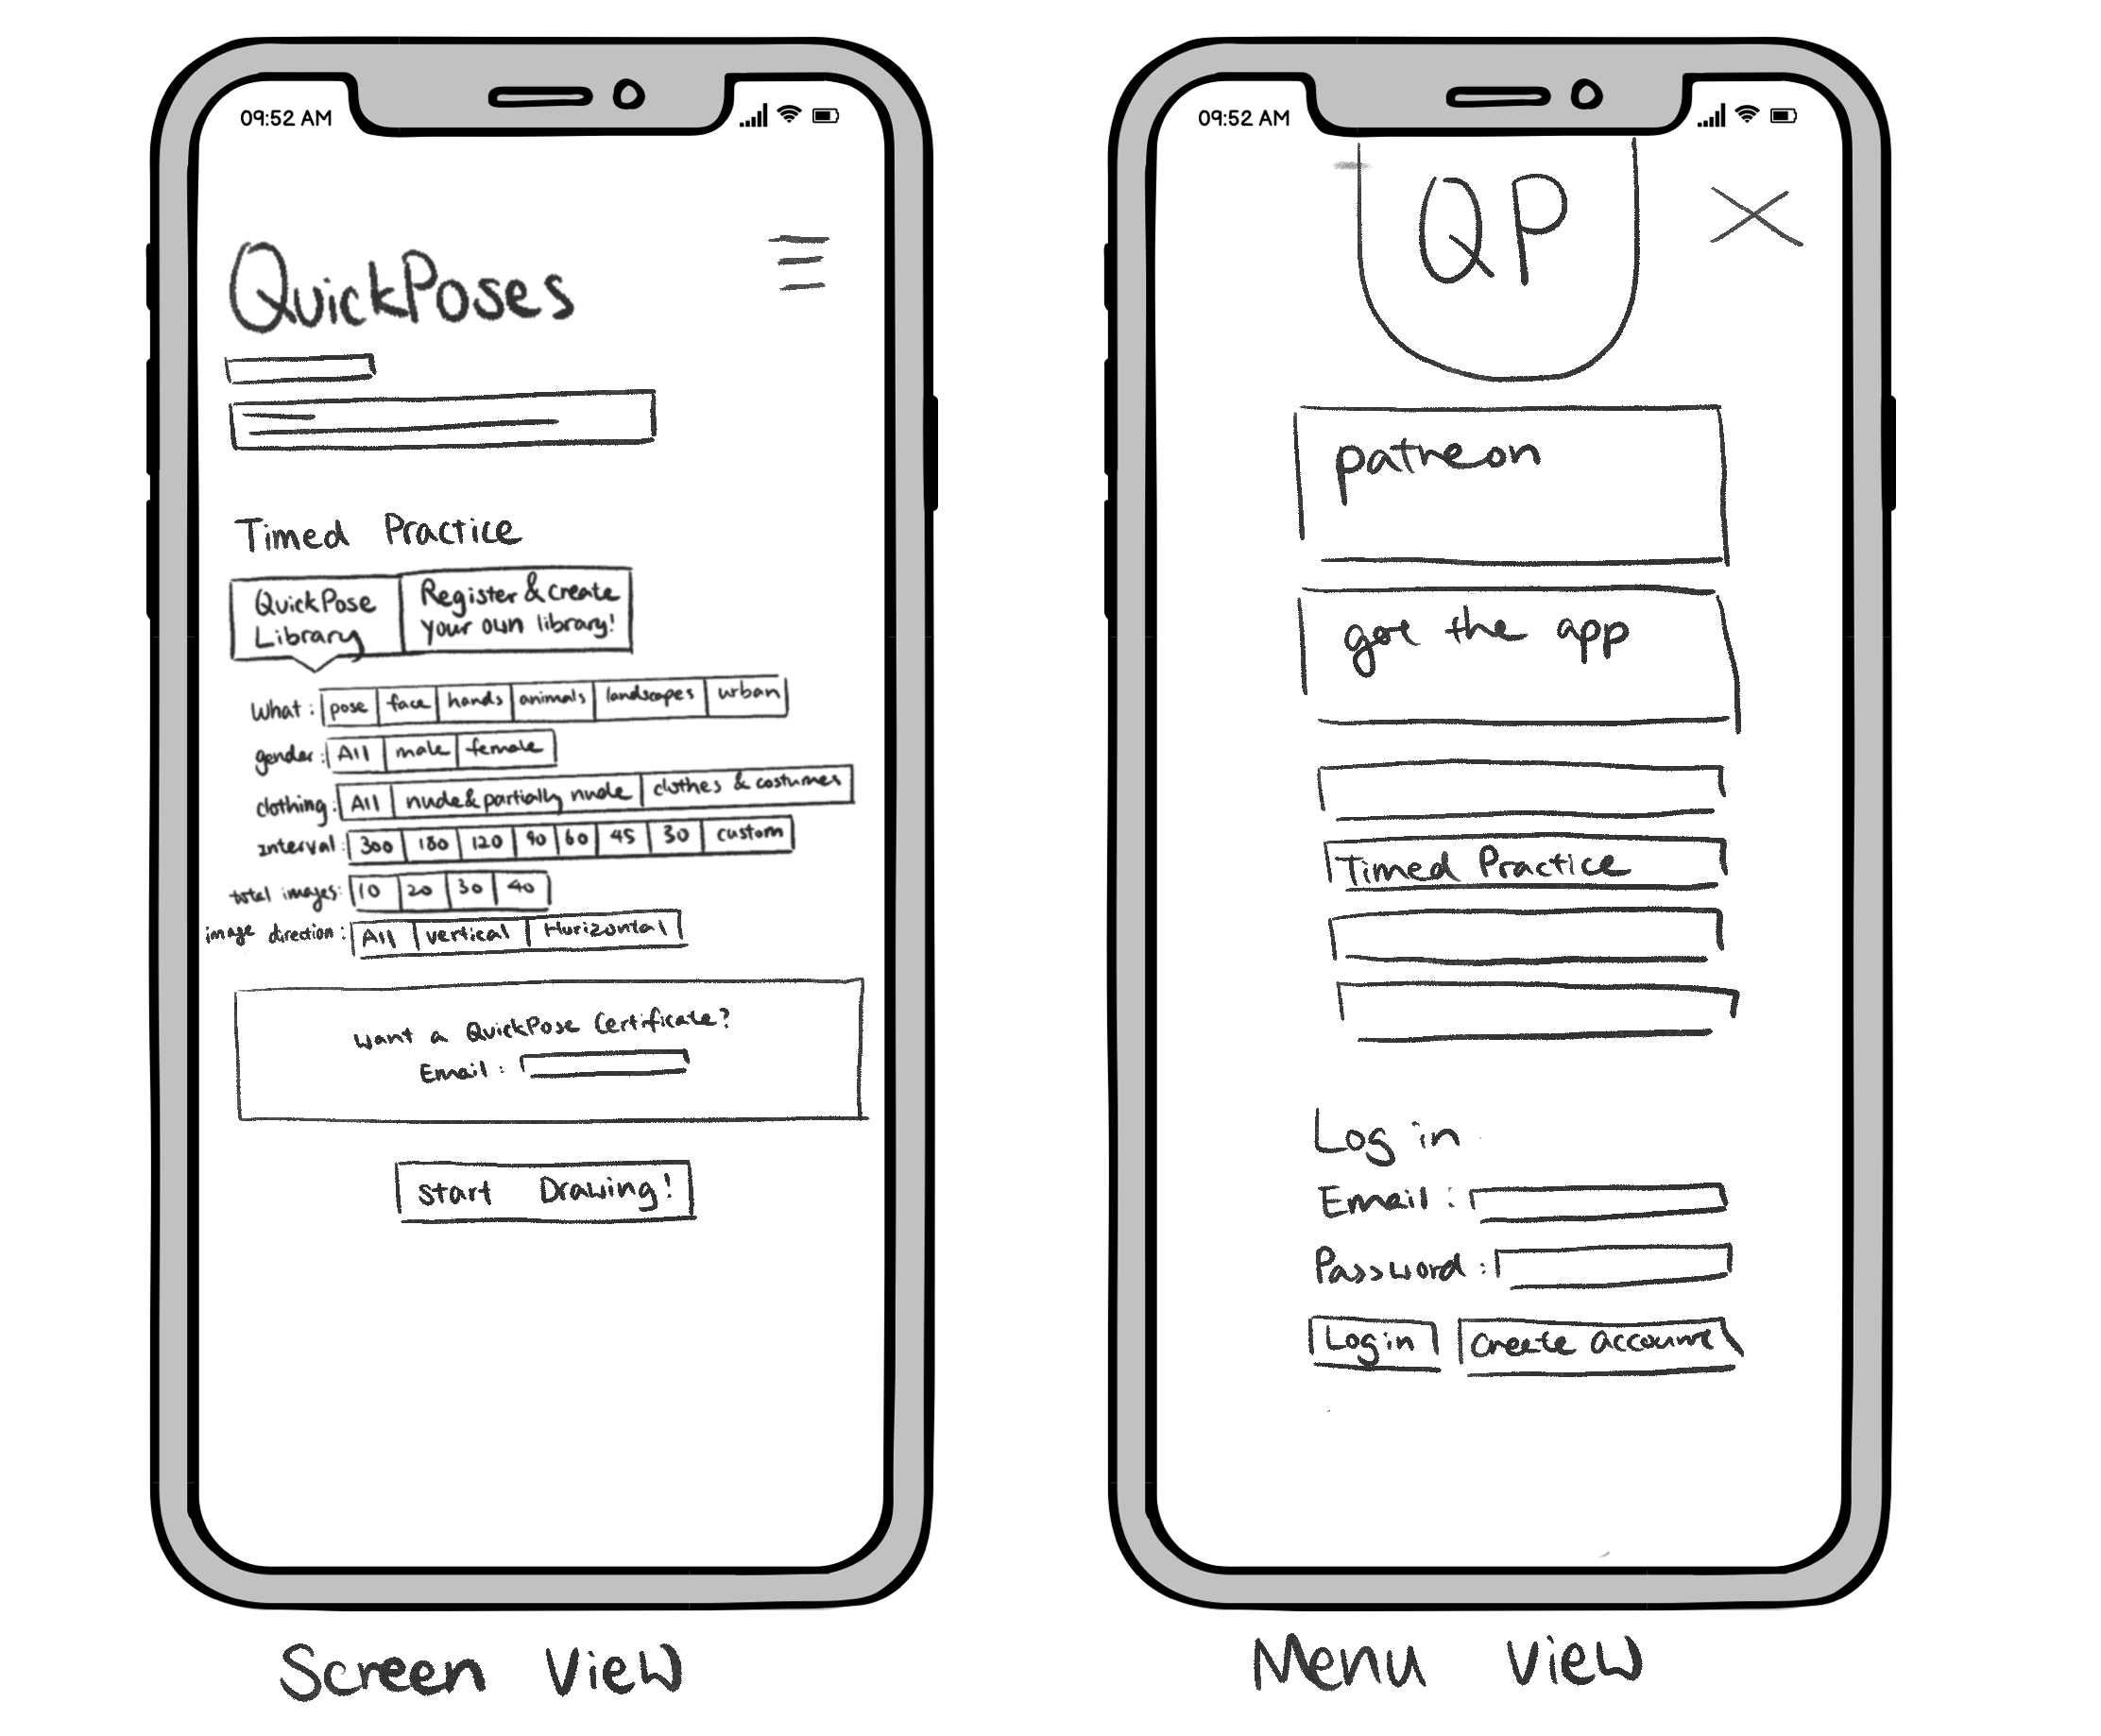 09:52 AM
QuickPoses
Timed Practice
QuickPose Library
Register & create your own library!
What: pose face hands animals landscapes urban
gender: All male female
clothing: All nude & partially nude clothes & costumes
Interval: 300 180 120 90 60 45 30 custom
total images: 10 20 30 40
image direction: All vertical Horizontal
Want a QuickPose Certificate?
Email:
Start Drawing!
Screen View
09:52 AM
QP
patreon
get the app
Timed Practice
Log in
Email:
Password:
Login Create account
Menu View